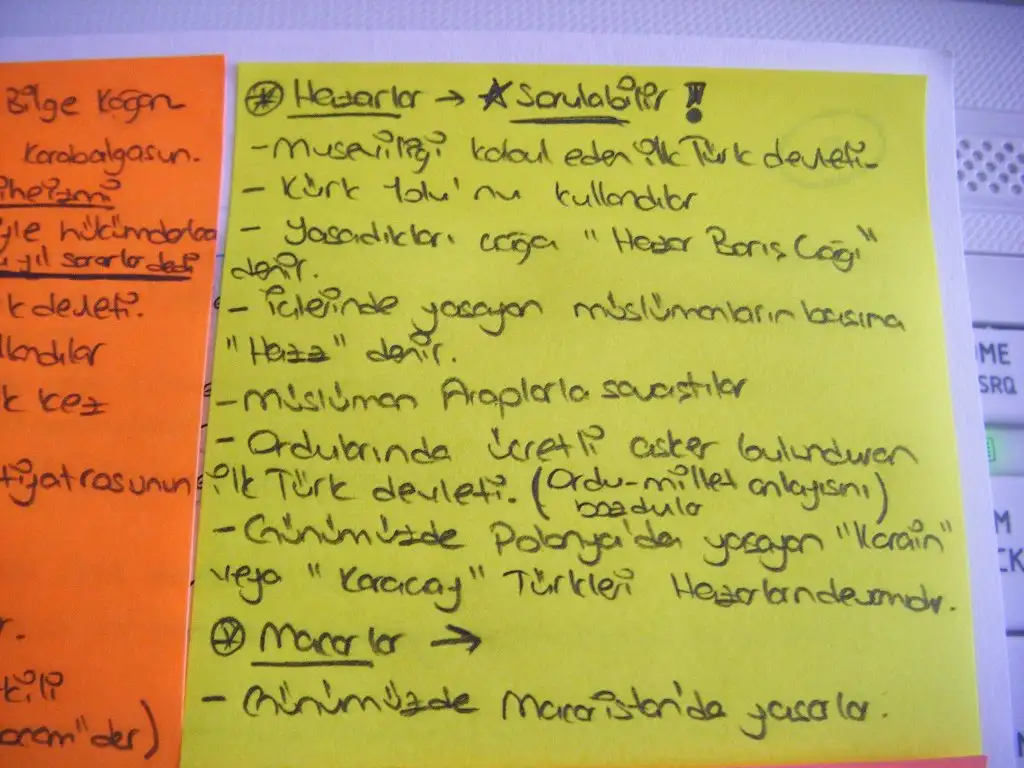 Bilge Kağan
Karabalgasun.
iheizmi
yle hükümdarlara
yıl sorarlar dedi
k devleti.
llandılar
k kez
tiyatrosunun
r.
kili
aram" der)
Hazarlar → ★ Sorulabilir !
- Museviliği kabul eden ilk Türk devleti-
- Kürk Yolu'nu kullandılar
- Yaşadıkları çağa "Hazar Barış Çağı"
denir.
- İçlerinde yaşayan müslümanların başına
"Hazz" denir.
- Müslüman Araplarla savaştılar
- Ordularında ücretli asker bulunduran
ilk Türk devleti. (Ordu-millet anlayışını)
bozdular
- Günümüzde Polonya'da yaşayan "Karain"
veya "Karaçay" Türkleri Hazarlardevamıdır.
Macarlar →
- Günümüzde Macaristan'da yaşarlar.
ME
SRQ
M
CK